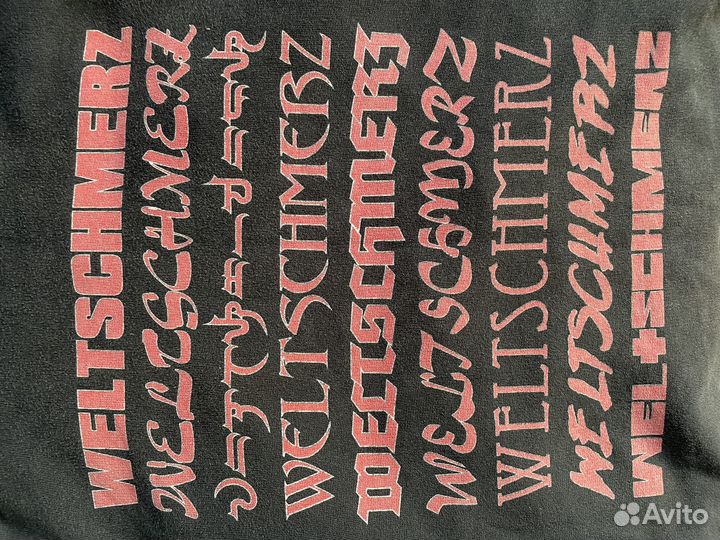 WELTSCHMERZ
WELTSCHMERZ
WELTSCHMERZ
WELTSCHMERZ
WELTSCHMERZ
WELTSCHMERZ
WELTSCHMERZ
WEL+SCHMERZ
Avito